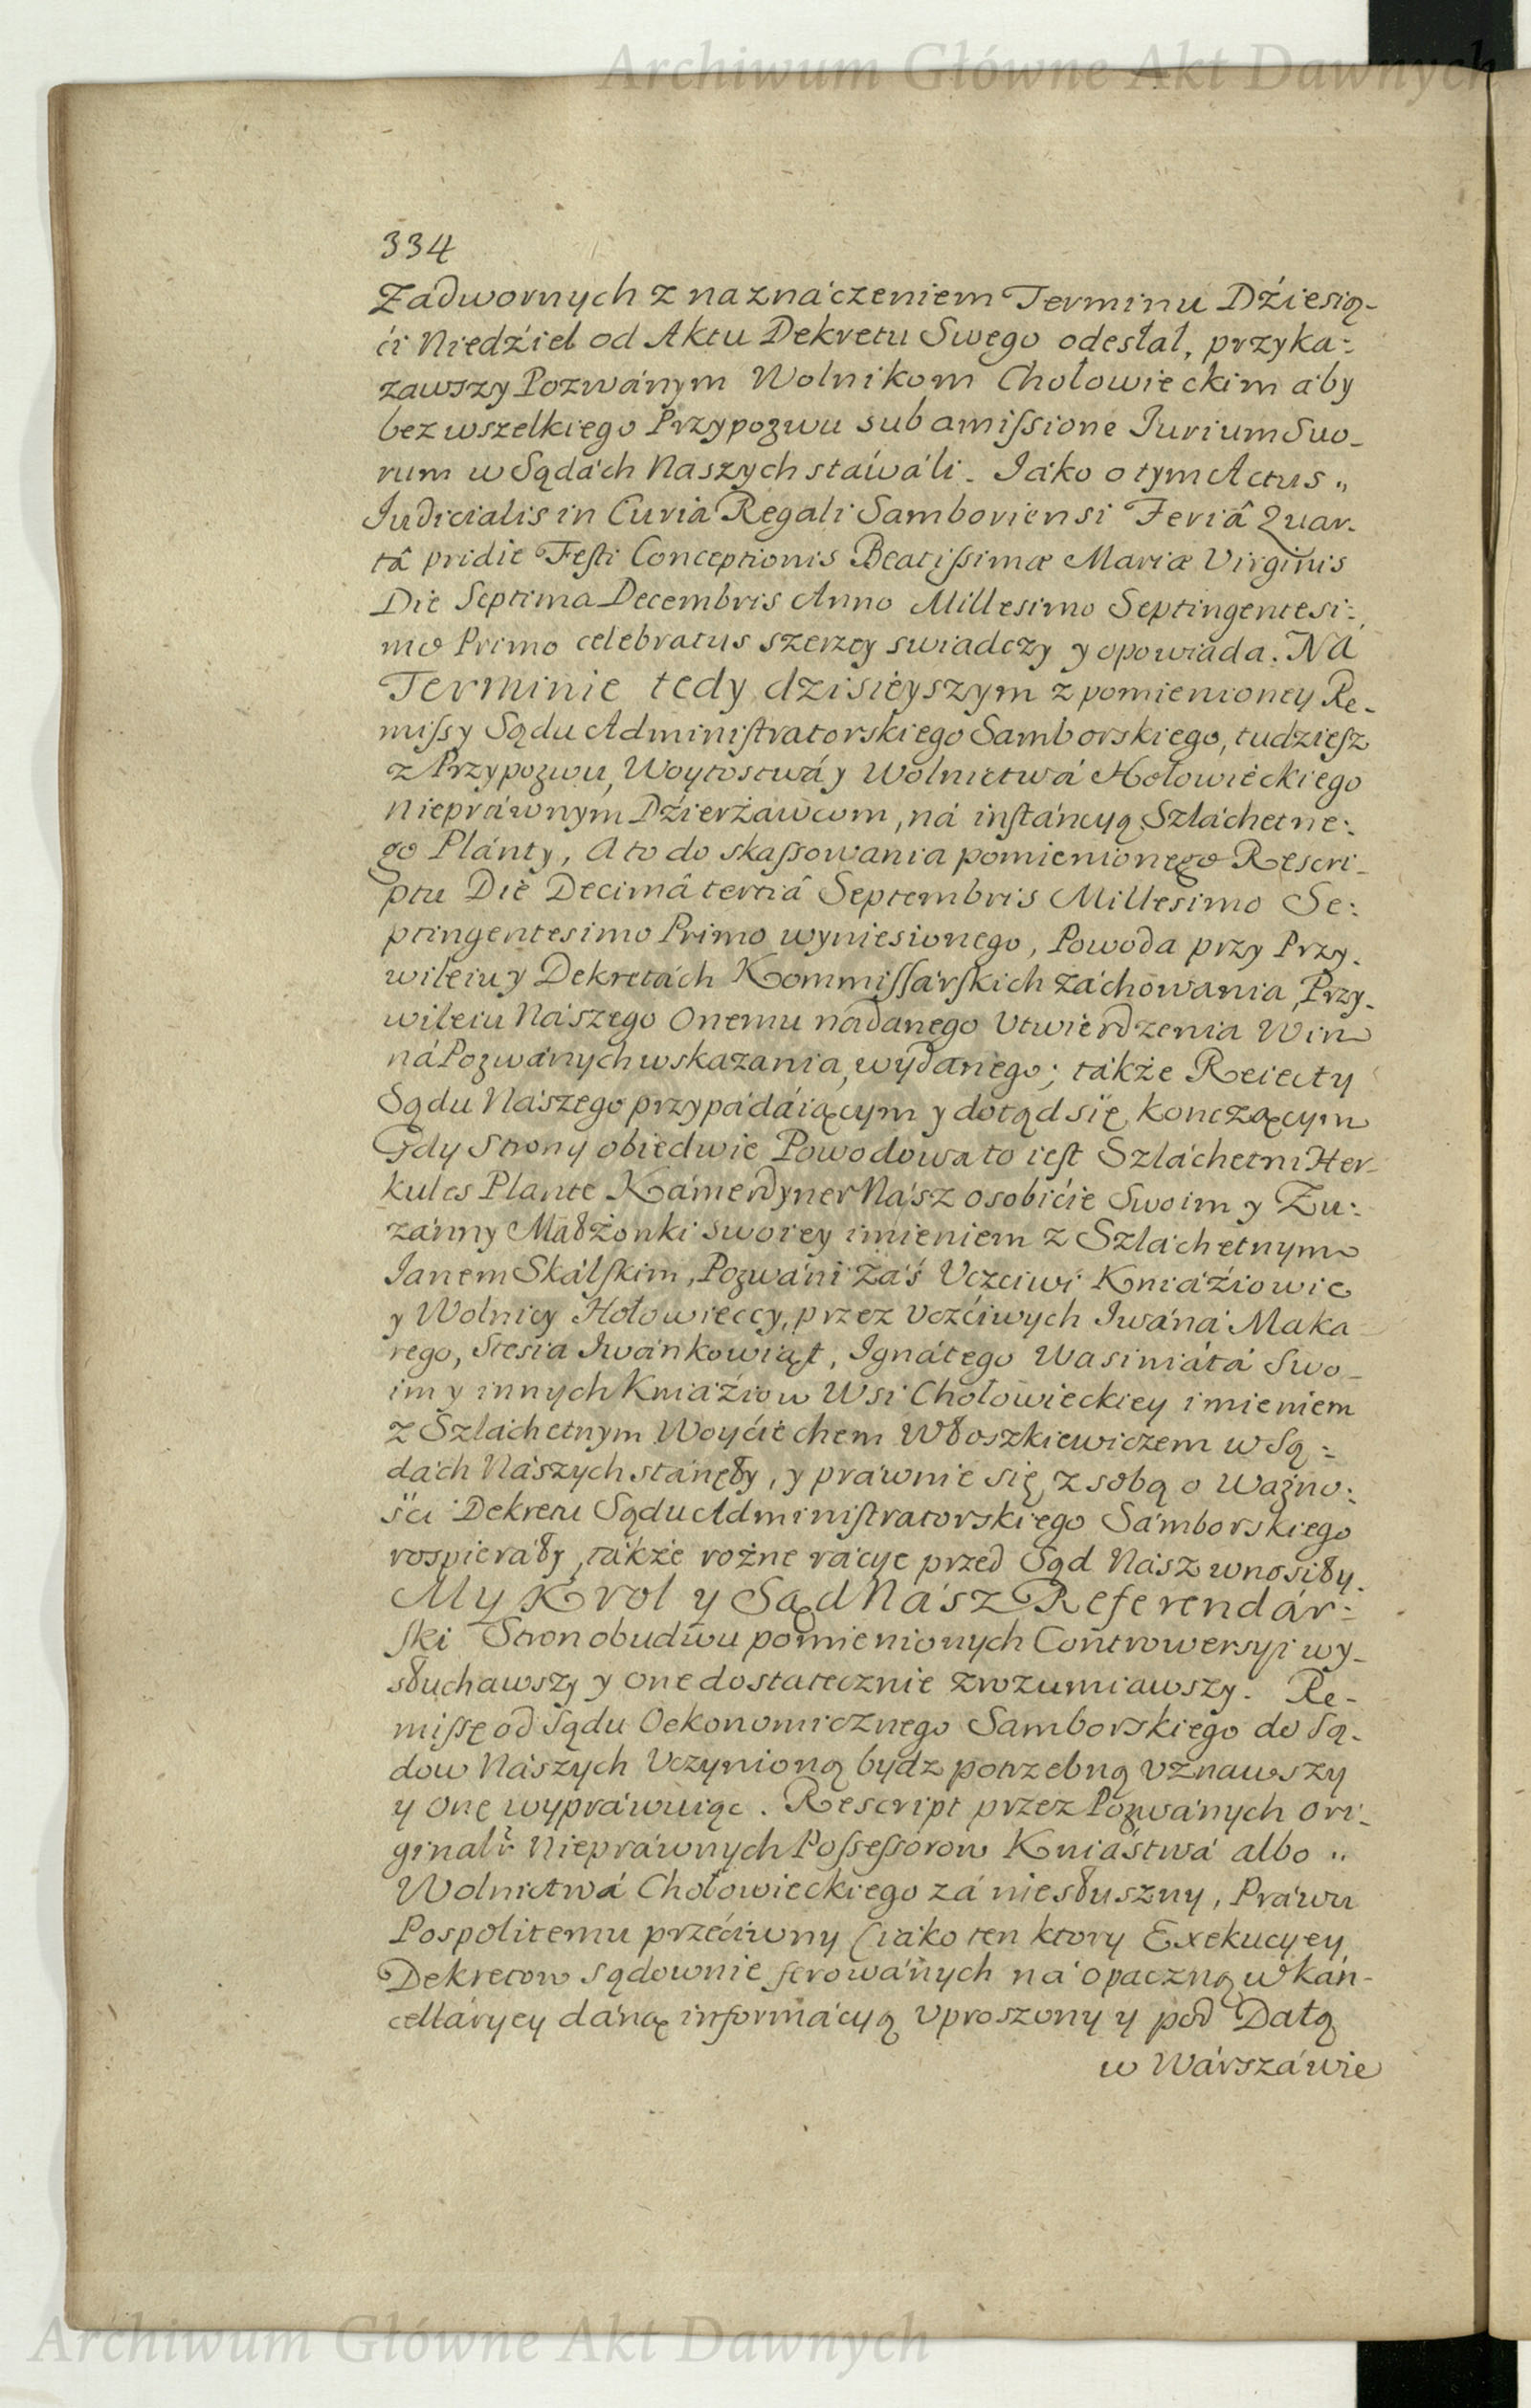 Archiwum Główne Akt Dawnych
334
Zadwornych z náznáczeniem Terminu Dźiesią-
ći Niedźiel od Aktu Dekretu Swego odesłał, przyka=
zawszy Pozwánym Wolnikom Chołowieckim áby
bez wszelkiego Przypozwu sub amiſsione Iurium Suo-
rum w Sądách Naszych stáwáli. Iáko o tym Actus „
Iudicialis in Curia Regali Samboriensi Feriâ Quar-
tâ pridie Feſti Conceptionis Beatiſsimæ Mariæ Virginis
Die Septima Decembris Anno Millesimo Septingentesi=
mo Primo celebratus szerzey swiadczy y opowiada. Na
Terminie tedy dzisieyszym z pomienioney Re-
miſsy Sądu Adminiſtratorskiego Samborskiego, tudzieſz
z Przypozwu, Woytostwá y Wolnictwá Hołowieckiego
niepráwnym Dźierżawcom, ná inſtáncyą Szláchetne=
go Plánty, A to do skaſsowania pomienionego Rescri-
ptu Die Decimâ tertiâ Septembris Millesimo Se=
ptingentesimo Primo wyniesionego, Powoda przy Przy-
wileiu y Dekretách Kommiſſárſkich záchowania, Przy-
wileiu Nászego Onemu nádanego Utwierdzenia Win
ná Pozwánych wskazania, wydanego; tákże Reiecty
Sądu Nászego przypádáiącym y dotąd się konczącym
Gdy Strony obiedwie Powodowa to ieſt Szláchetni Her-
kules Plante Kámerdyner Nász osobiśćie Swoim y Zu=
zánny Małżonki swoiey imieniem z Szláchetnym
Ianem Skálſkim, Pozwáni záś Uczciwi Kniáźiowie
y Wolnicy Hołowieccy, przez Uczćiwych Iwáná Maka
rego, Stesia Iwánkowiąt, Ignátego Wasiniátá Swo-
im y innych Kniáźiow Wsi Chołowieckiey imieniem
z Szláchetnym Woyćiechem Włoszkiewiczem w Są=
dách Nászych stánęły, y práwnie się z sobą o Ważno=
śći Dekretu Sądu Adminiſtratorskiego Sámborskiego
rospieráły, tákże rożne rácye przed Sąd Nász wnosiły.
My Krol y Sąd Nász Referendár=
ſki Stron obudwu pomienionych Controwersyi wy-
słuchawszy y one dostatecznie zrozumiawszy. Re-
miſsę od Sądu Oekonomicznego Samborskiego do Są-
dow Nászych Uczynioną bydz potrzebną Uznawszy
y Onę wypráwuiąc. Rescript przez Pozwánych Ori-
ginalr Niepráwnych Poſseſsorow Kniástwá albo „
Wolnictwá Chołowieckiego zá niesłuszny, Práwu
Pospolitemu przećiwny (iáko ten ktory Exekucyey
Dekretow sądownie ferowánych ná opaczną w Kán-
celláryey dáną informácyą Uproszony y pod Datą
w Wárszáwie
Archiwum Główne Akt Dawnych